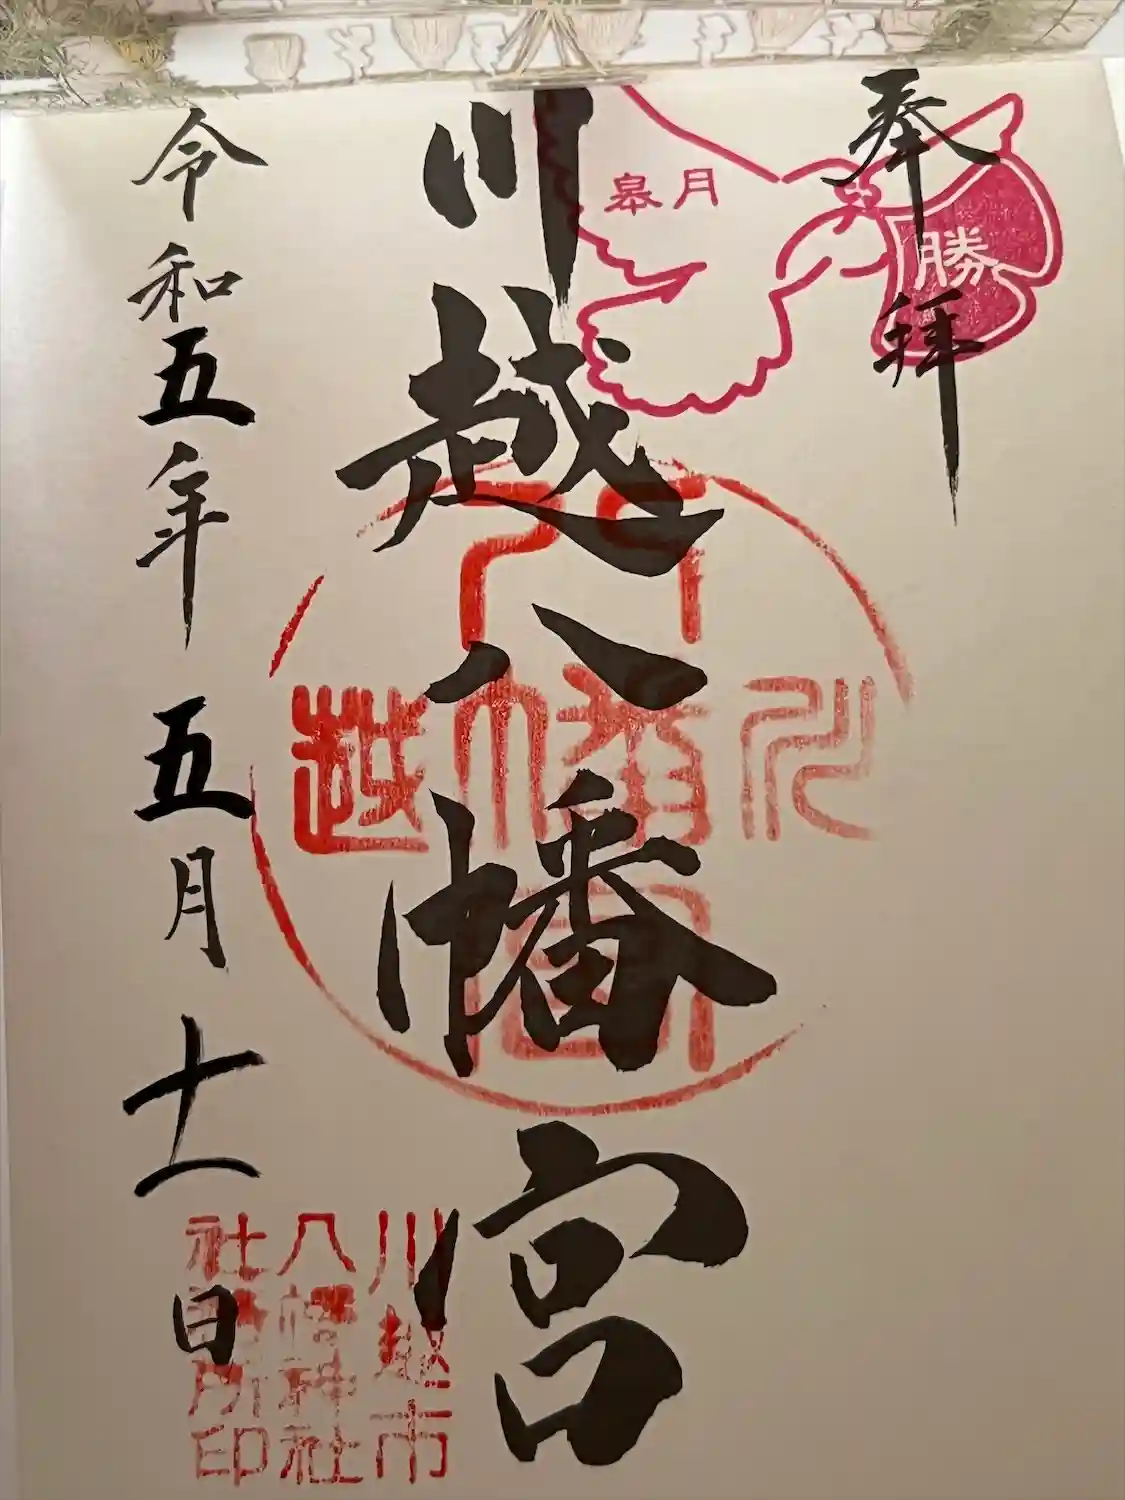 奉拝
皐月
勝
川越八幡宮
川越
八幡宮
令和五年五月十一日
川越市
八幡神社
社務所印